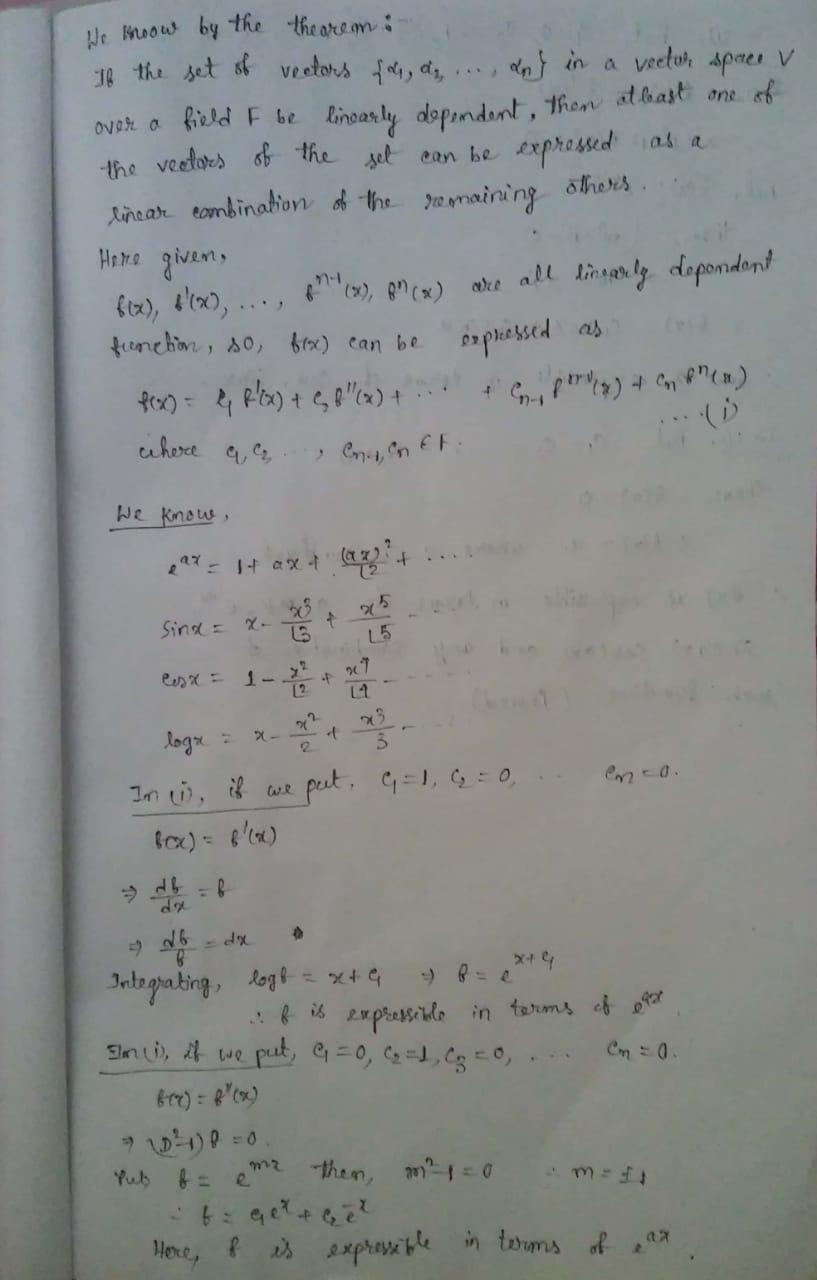 We know by the theorem :
If the set of vectors {α₁, α₂, ..., αn} in a vector space V
over a field F be linearly dependent, then atleast one of
the vectors of the set can be expressed as a
linear combination of the remaining others.
Here given,
f(x), f'(x), ..., fⁿ⁻¹(x), fⁿ(x) are all linearly dependent
function, so, f(x) can be expressed as
f(x) = c₁ f'(x) + c₂ f''(x) + ... + cₙ₋₁ fⁿ⁻¹(x) + cₙ fⁿ(x)
... (i)
where c₁, c₂ ..., cₙ₋₁, cₙ ∈ F.
We know,
e^{ax} = 1 + ax + (ax)²/⌊2 + ....
sinx = x - x³/⌊3 + x⁵/⌊5 - ...
cosx = 1 - x²/⌊2 + x⁴/⌊4 - ...
logx = x - x²/2 + x³/3 - ...
In (i), if we put, c₁ = 1, c₂ = 0, .. cn = 0.
f(x) = f'(x)
⇒ df/dx = f
⇒ df/f = dx
Integrating, logf = x + c₁ ⇒ f = e^{x+c₁}
∴ f is expressible in terms of e^{ax}
In (i), if we put, c₁ = 0, c₂ = 1, c₃ = 0, ... cn = 0.
f(x) = f''(x)
⇒ (D²-1) f = 0.
Put f = e^{mx} then, m²-1 = 0 ∴ m = ±1
∴ f = c₁e^x + c₂e^{-x}
Here, f is expressible in terms of e^{ax}.